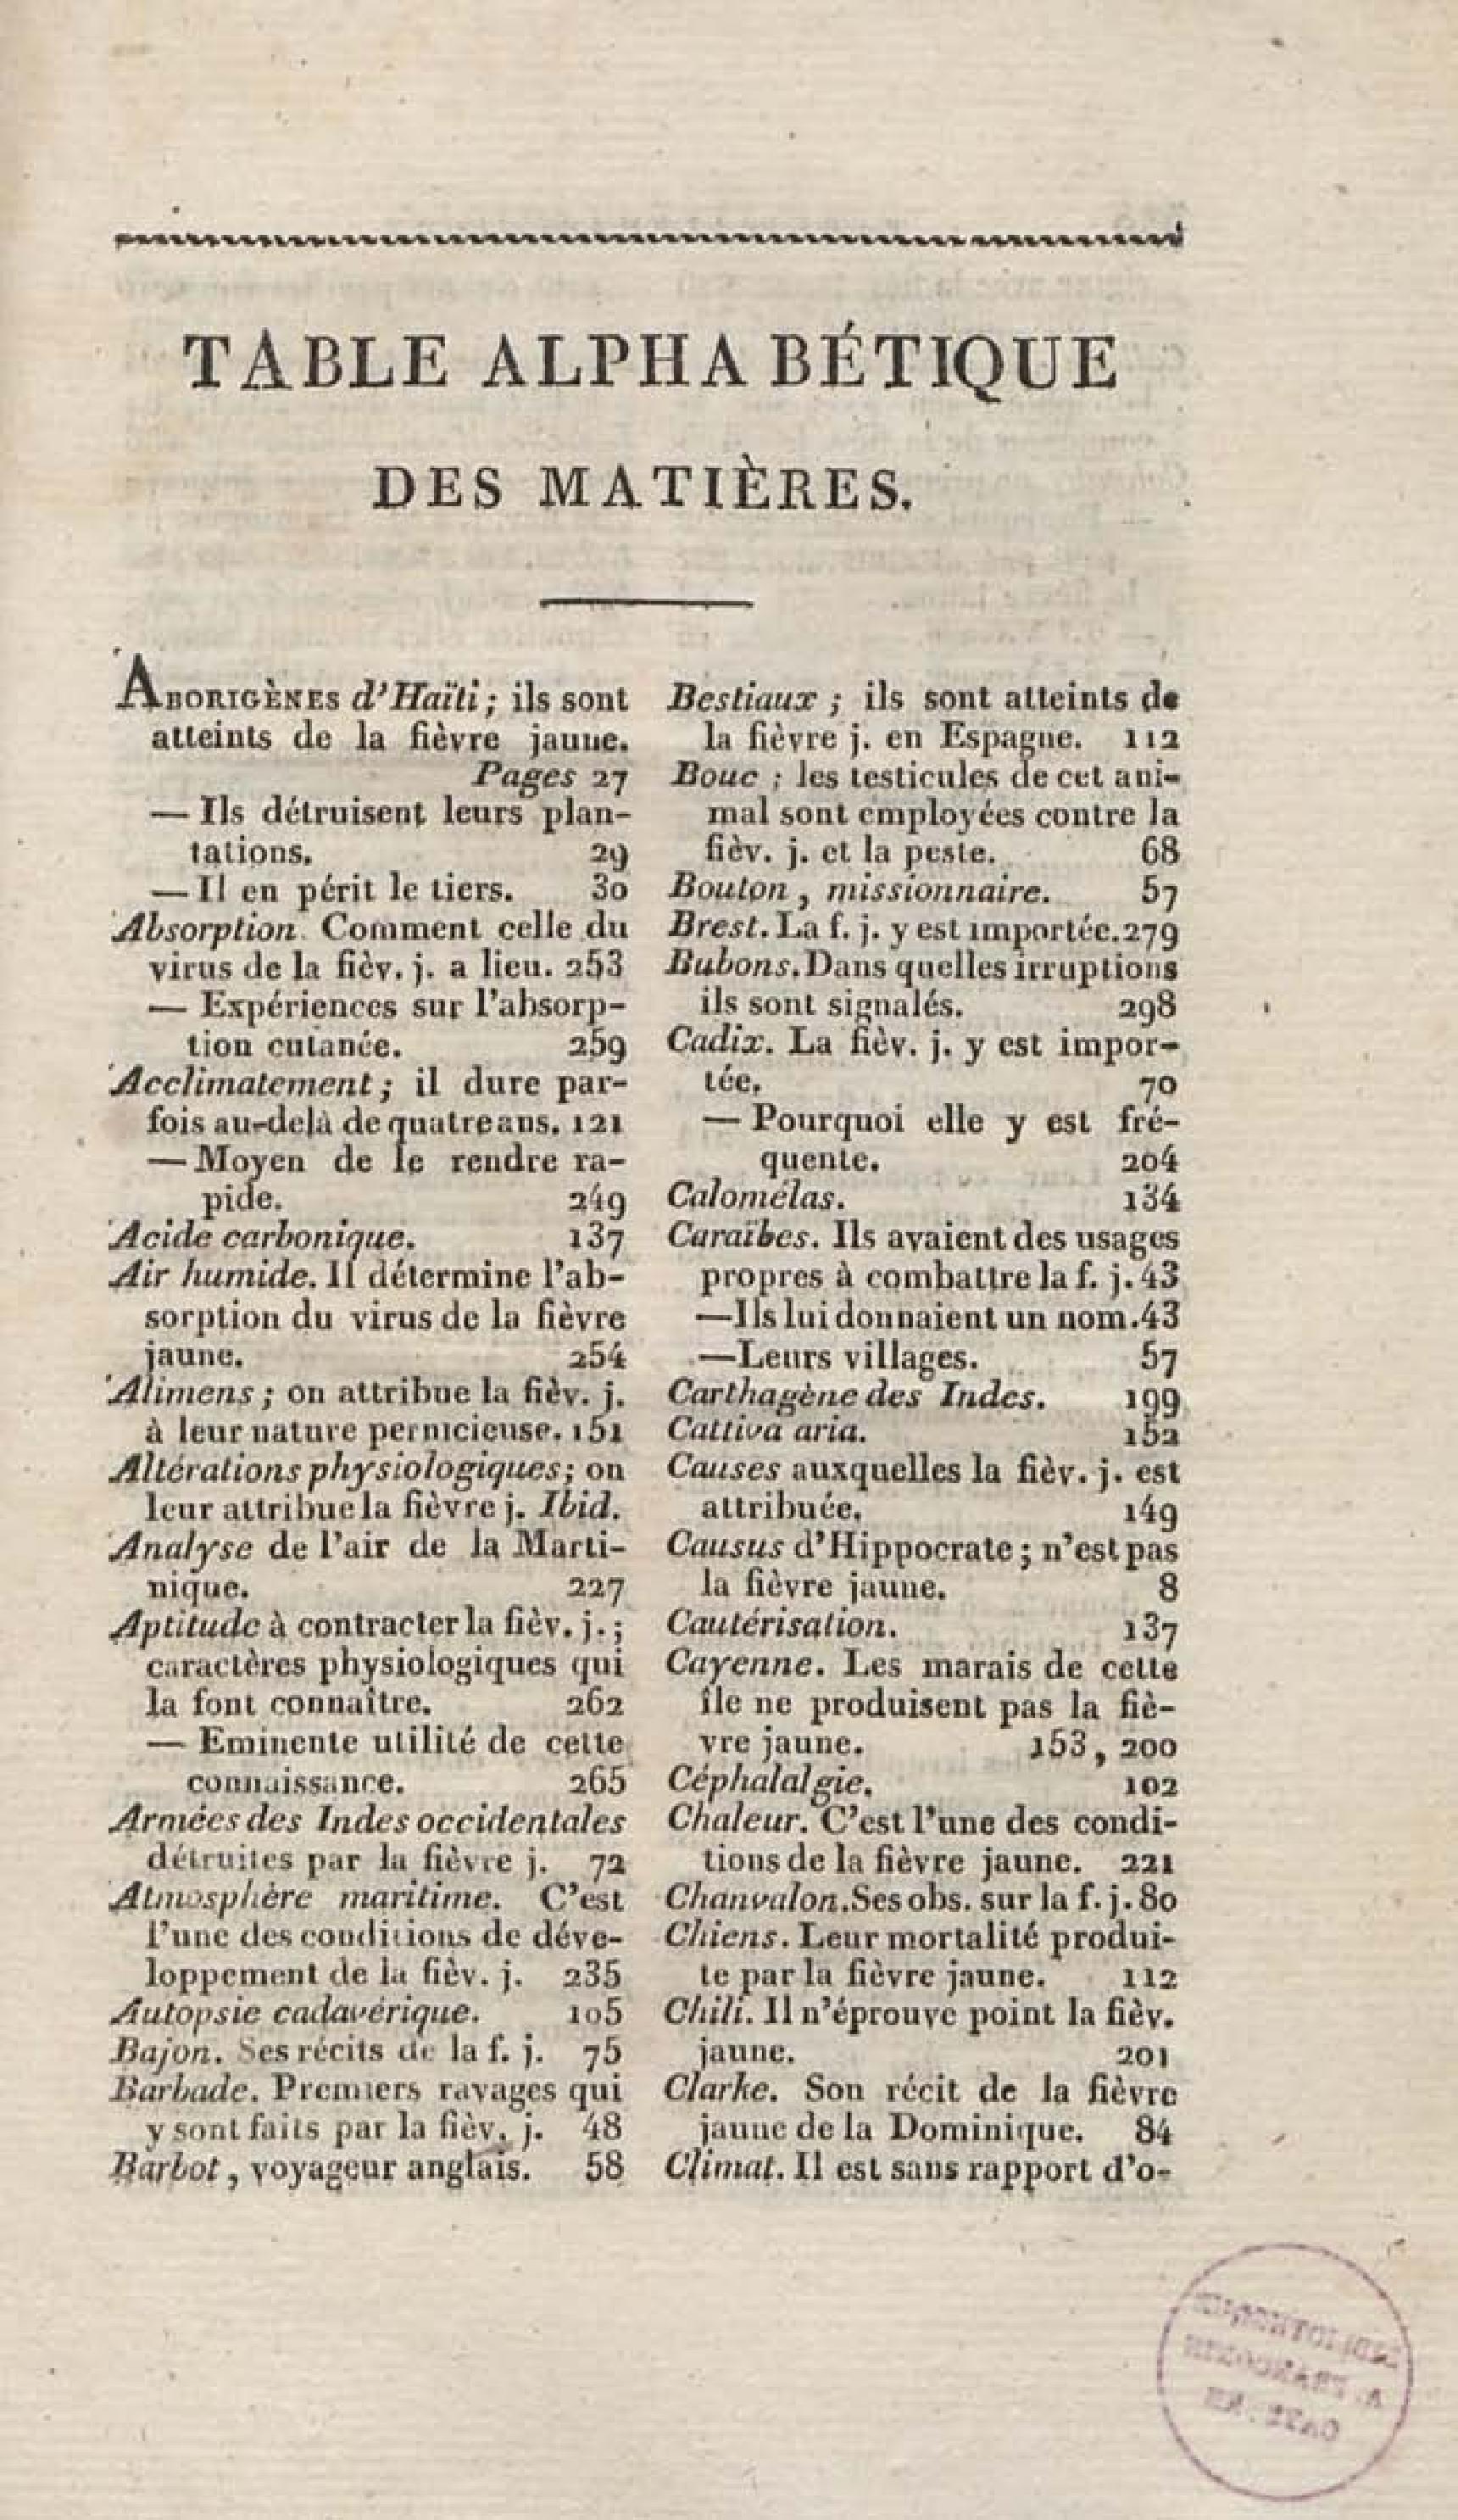 TABLE ALPHABÉTIQUE
DES MATIÈRES.
ABORIGÈNES d'Haïti ; ils sont
atteints de la fièvre jaune.
Pages 27
— Ils détruisent leurs plan-
tations. 29
— Il en périt le tiers. 30
Absorption. Comment celle du
virus de la fièv. j. a lieu. 253
— Expériences sur l'absorp-
tion cutanée. 259
Acclimatement ; il dure par-
fois au-delà de quatre ans. 121
— Moyen de le rendre ra-
pide. 249
Acide carbonique. 137
Air humide. Il détermine l'ab-
sorption du virus de la fièvre
jaune. 254
Alimens ; on attribue la fièv. j.
à leur nature pernicieuse. 151
Altérations physiologiques ; on
leur attribue la fièvre j. Ibid.
Analyse de l'air de la Marti-
nique. 227
Aptitude à contracter la fièv. j. ;
caractères physiologiques qui
la font connaître. 262
— Eminente utilité de cette
connaissance. 265
Armées des Indes occidentales
détruites par la fièvre j. 72
Atmosphère maritime. C'est
l'une des conditions de déve-
loppement de la fièv. j. 235
Autopsie cadavérique. 105
Bajon. Ses récits de la f. j. 75
Barbade. Premiers ravages qui
y sont faits par la fièv. j. 48
Barbot, voyageur anglais. 58
Bestiaux ; ils sont atteints de
la fièvre j. en Espagne. 112
Bouc ; les testicules de cet ani-
mal sont employées contre la
fièv. j. et la peste. 68
Bouton, missionnaire. 57
Brest. La f. j. y est importée. 279
Bubons. Dans quelles irruptions
ils sont signalés. 298
Cadix. La fièv. j. y est impor-
tée. 70
— Pourquoi elle y est fré-
quente. 204
Calomélas. 134
Caraïbes. Ils avaient des usages
propres à combattre la f. j. 43
— Ils lui donnaient un nom. 43
— Leurs villages. 57
Carthagène des Indes. 199
Cattiva aria. 152
Causes auxquelles la fièv. j. est
attribuée. 149
Causus d'Hippocrate ; n'est pas
la fièvre jaune. 8
Cautérisation. 137
Cayenne. Les marais de cette
île ne produisent pas la fiè-
vre jaune. 153, 200
Céphalalgie. 102
Chaleur. C'est l'une des condi-
tions de la fièvre jaune. 221
Chanvalon. Ses obs. sur la f. j. 80
Chiens. Leur mortalité produi-
te par la fièvre jaune. 112
Chili. Il n'éprouve point la fièv.
jaune. 201
Clarke. Son récit de la fièvre
jaune de la Dominique. 84
Climat. Il est sans rapport d'o-